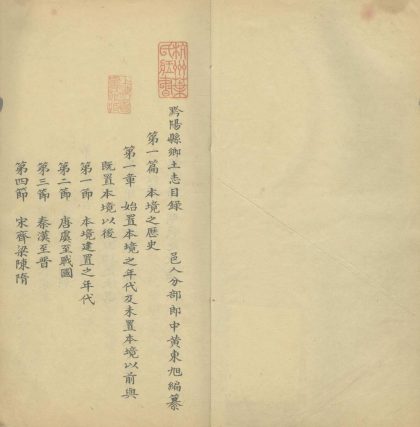 黔陽縣鄉土志目錄
邑人分部郎中黃東旭編纂
第一篇 本境之歷史
第一章 始置本境之年代及未置本境以前與
既置本境以後
第一節 本境建置之年代
第二節 唐虞至戰國
第三節 秦漢至晉
第四節 宋齊梁陳隋
杭州葉氏藏書